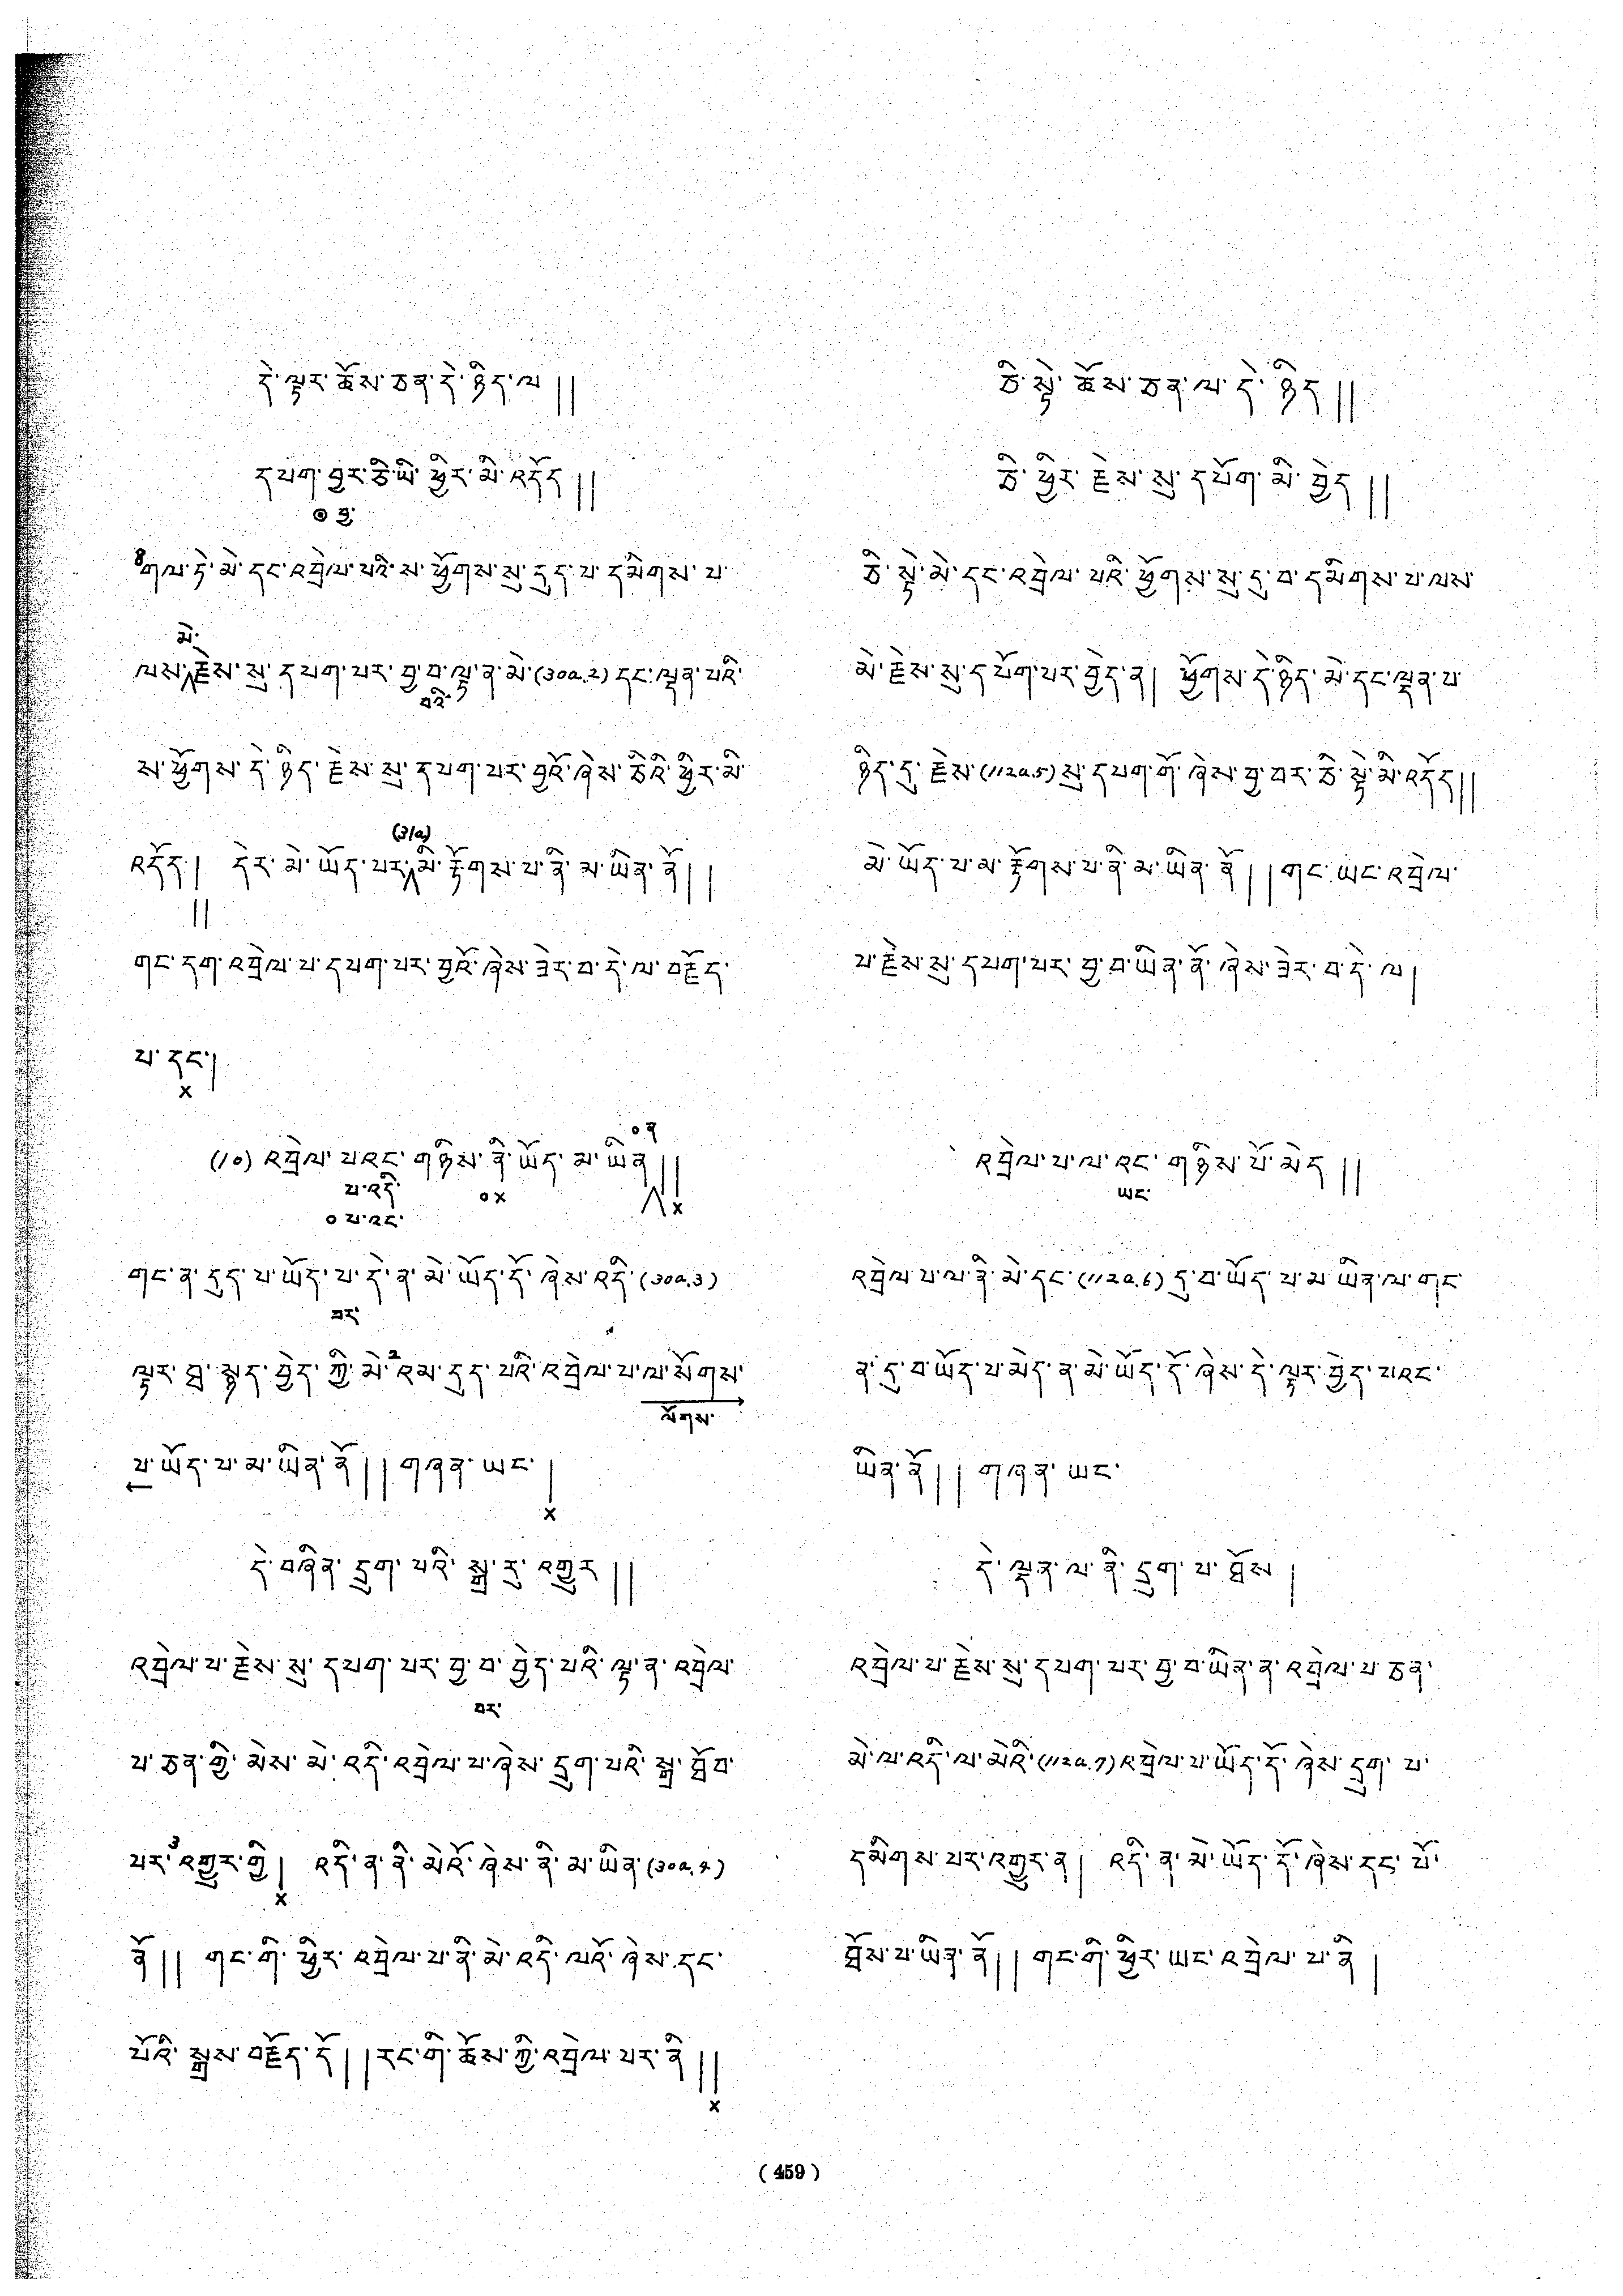 དེ་ལྟར་ཆོས་ཅན་དེ་ཉིད་ལ།།
དཔག་བྱར་ཅི་ཡི་ཕྱིར་མི་འདོད།།
གལ་ཏེ་མེ་དང་འབྲེལ་པའི་ས་ཕྱོགས་སུ་དུད་པ་དམིགས་པ་
མེ་
ལས་རྗེས་སུ་དཔག་པར་བྱ་བ་ལྟ་ན་མེ་(30a.2)དང་ལྡན་པའི་
བའི་
ས་ཕྱོགས་དེ་ཉིད་རྗེས་སུ་དཔག་པར་བྱའོ་ཞེས་ཅིའི་ཕྱིར་མི་
(31a)
འདོད་། དེར་མེ་ཡོད་པར་མི་རྟོགས་པ་ནི་མ་ཡིན་ནོ།།
།།
གང་དག་འབྲེལ་པ་དཔག་པར་བྱའོ་ཞེས་ཟེར་བ་དེ་ལ་བརྗོད་
པ་དང་།
x
(10) འབྲེལ་པའང་གཉིས་ནི་ཡོད་མ་ཡིན།།
པ་འདི་ ० x x
० པ་འང་
གང་ན་དུད་པ་ཡོད་པ་དེ་ན་མེ་ཡོད་དོ་ཞེས་འདི་(30a.3)
བར་
ལྟར་བྲ་སྙད་བྱེད་ཀྱི་མེ་2འམ་དུད་པའི་འབྲེལ་པ་ལ་སོགས་
ལོགས་
པ་ཡོད་པ་མ་ཡིན་ནོ།། གཞན་ཡང་།
x
དེ་བཞིན་དྲུག་པའི་སྒྲ་རུ་འགྱུར།།
འབྲེལ་པ་རྗེས་སུ་དཔག་པར་བྱ་བ་བྱེད་པའི་ལྟ་ན་འབྲེལ་
བར་
པ་ཅན་གྱི་མེས་མེ་འདི་འབྲེལ་པ་ཞེས་དྲུག་པའི་སྒྲ་ཐོབ་
པར་3འགྱུར་གྱི། འདི་ན་ནི་མེའོ་ཞེས་ནི་མ་ཡིན་(30a.4)
x
ནོ།། གང་གི་ཕྱིར་འབྲེལ་པ་ནི་མེ་འདི་ལའོ་ཞེས་དང་
པོའི་སྒྲས་བརྗོད་དོ།།རང་གི་ཆོས་ཀྱི་འབྲེལ་པར་ནི།།
x
ཅི་སྟེ་ཆོས་ཅན་ལ་དེ་ཉིད།།
ཅི་ཕྱིར་རྗེས་སུ་དཔོག་མི་བྱེད།།
ཅི་སྟེ་མེ་དང་འབྲེལ་པའི་ཕྱོགས་སུ་དུ་བ་དམིགས་པ་ལས་
མེ་རྗེས་སུ་དཔོག་པར་བྱེད་ན། ཕྱོགས་དེ་ཉིད་མེ་དང་ལྡན་པ་
ཉིད་དུ་རྗེས་(112a.5)སུ་དཔག་གོ་ཞེས་བྱ་བར་ཅི་སྟེ་མི་འདོད།།
མེ་ཡོད་པ་མ་རྟོགས་པ་ནི་མ་ཡིན་ནོ།།གང་ཡང་འབྲེལ་
པ་རྗེས་སུ་དཔག་པར་བྱ་བ་ཡིན་ནོ་ཞེས་ཟེར་བ་དེ་ལ།
འབྲེལ་པ་ལ་འང་གཉིས་པོ་མེད།།
ཡང་
འབྲེལ་པ་ལ་ནི་མེ་དང་(112a.6)དུ་བ་ཡོད་པ་མ་ཡིན་ལ་གང་
ན་དུ་བ་ཡོད་པ་མེད་ན་མེ་ཡོད་དོ་ཞེས་དེ་ལྟར་བྱེད་པའང་
ཡིན་ནོ།། གཞན་ཡང་
དེ་ལྡན་ལ་ནི་དྲུག་པ་ཐོས།
འབྲེལ་པ་རྗེས་སུ་དཔག་པར་བྱ་བ་ཡིན་ན་འབྲེལ་པ་ཅན་
མེ་ལ་འདི་ལ་མེའི་(112a.7)འབྲེལ་པ་ཡོད་དོ་ཞེས་དྲུག་པ་
དམིགས་པར་འགྱུར་ན། འདི་ན་མེ་ཡོད་དོ་ཞེས་དང་པོ་
ཐོས་པ་ཡིན་ནོ།། གང་གི་ཕྱིར་ཡང་འབྲེལ་པ་ནི།
(459)